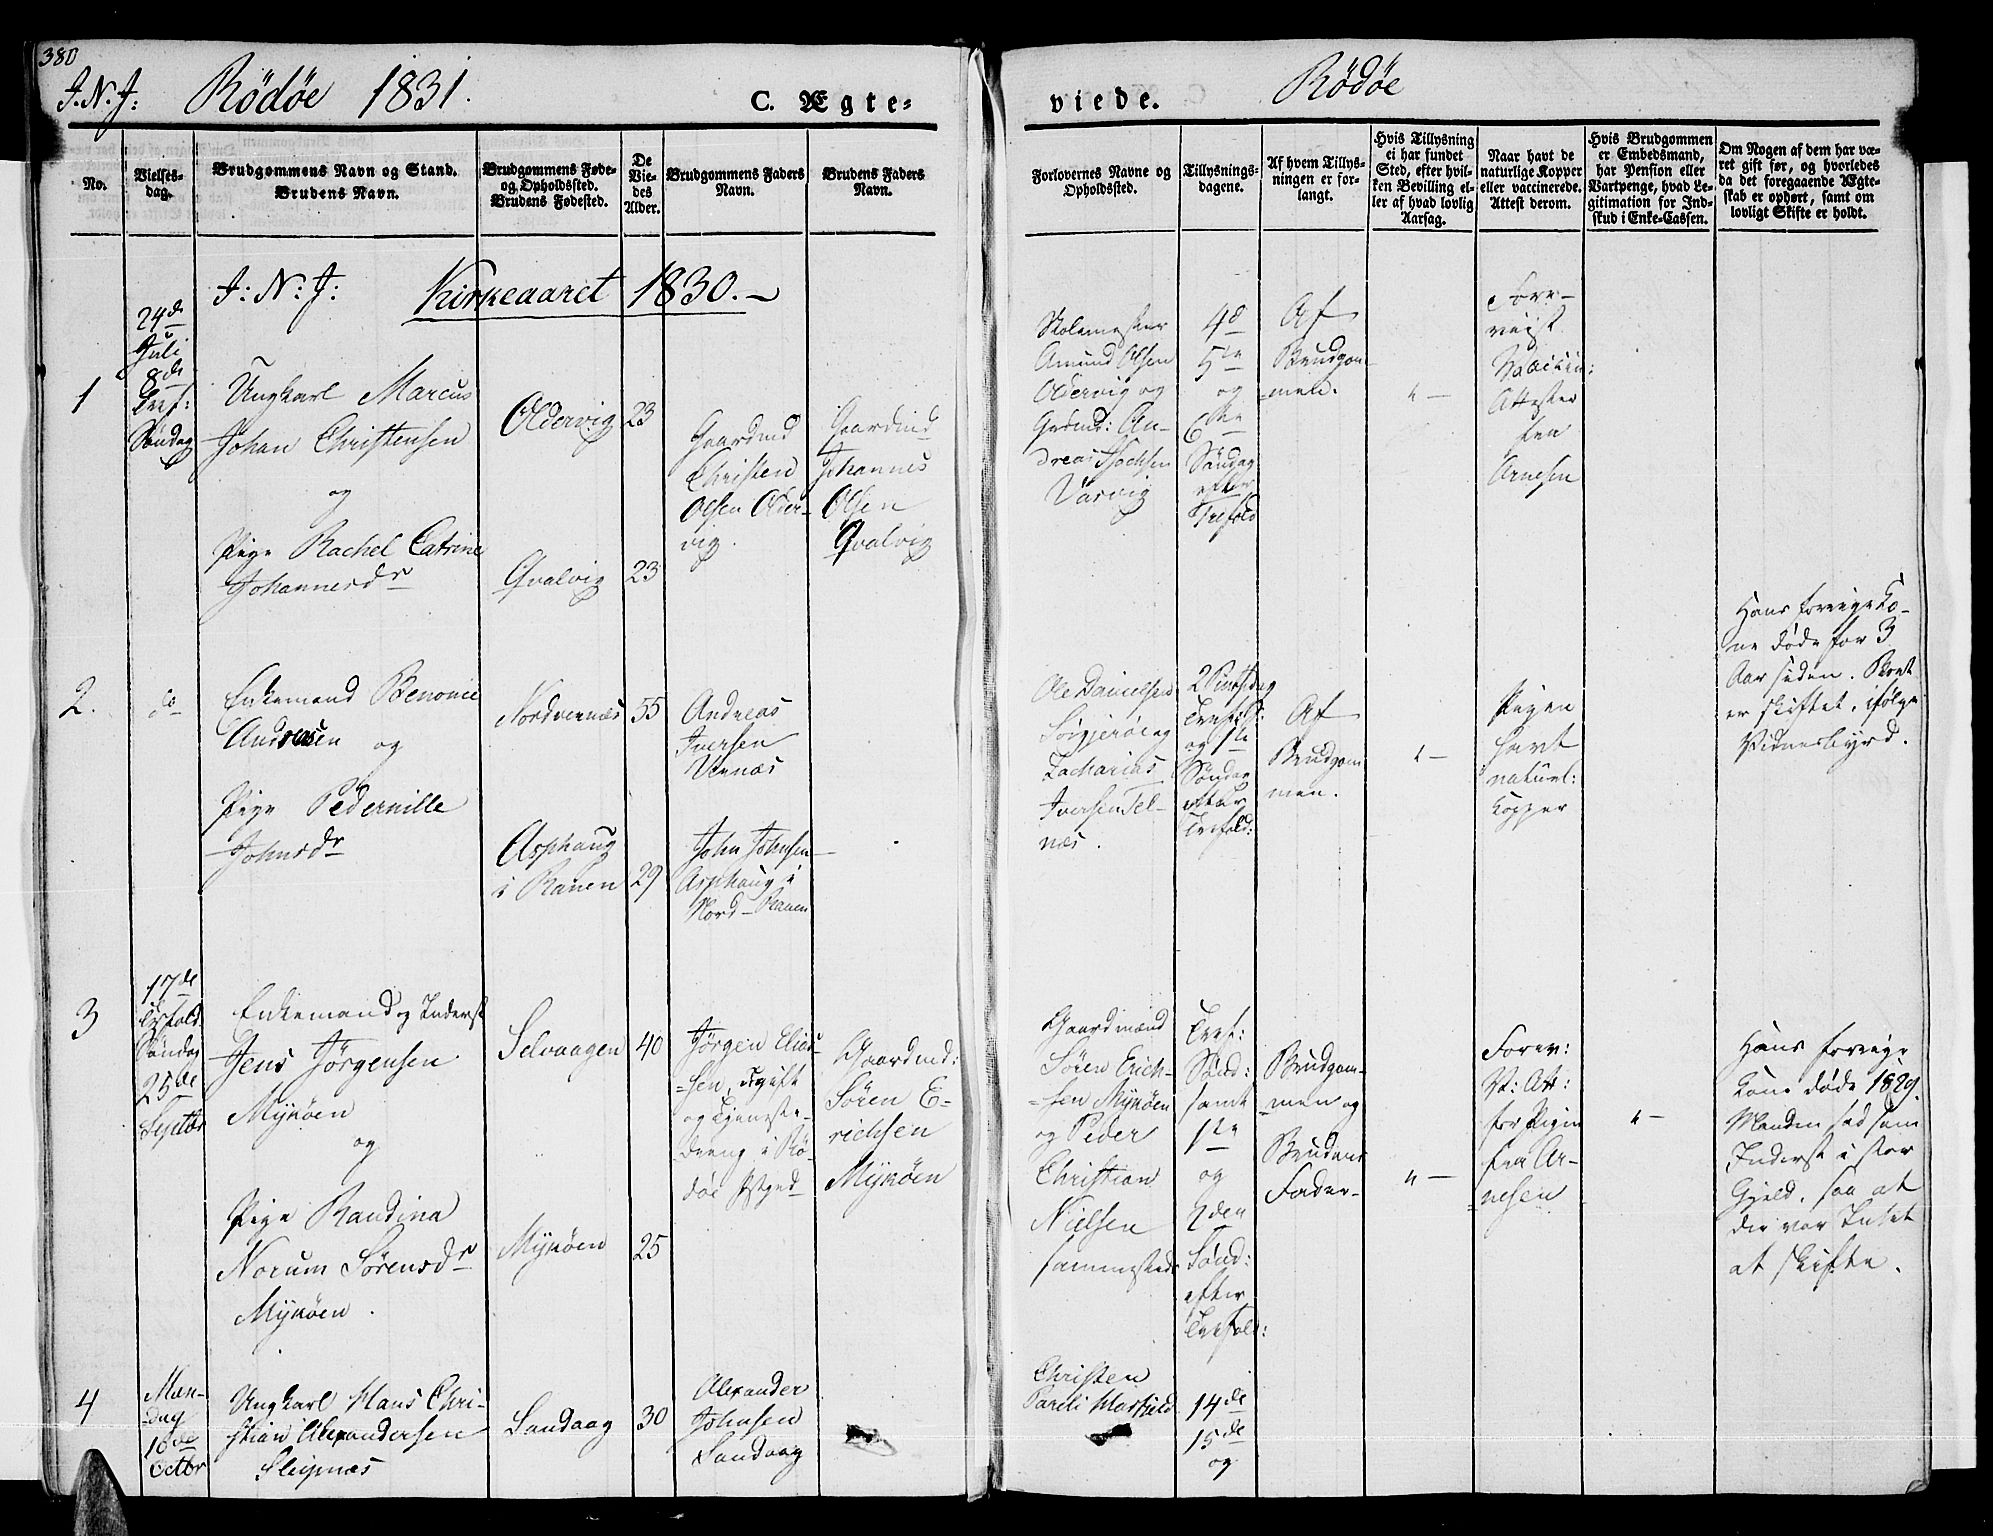 380
J. N. J: Rödöe 1831.
C. Ægte=
viede.
Rödöe
No.
Vielses-
dag.
Brudgommens Navn og Stand.
Brudens Navn.
Brudgommens Føde-
og Opholdssted.
Brudens Fødested.
De
Vie-
des
Alder.
Brudgommens Faders
Navn.
Brudens Faders
Navn.
Forlovernes Navne og
Opholdssted.
Tillysnings-
dagene.
Af hvem Tillys-
ningen er for-
langt.
Hvis Tillysning
ei har fundet
Sted, efter hvil-
ken Bevilling el-
ler af hvad lovlig
Aarsag.
Naar havt de
naturlige Kopper
eller vaccinerede.
Attest derom.
Hvis Brudgommen
er Embedsmand,
har Pension eller
Vartpenge, hvad Le-
gitimation for Ind-
skud i Enke-Cassen.
Om Nogen af dem har væ-
ret gift før, og hvorledes
da det foregaaende Ægte-
skab er ophørt, samt om
lovligt Skifte er holdt.
J: N: J: Kirkeaaret 1830.
1
24de
Juli
8de
Tref:
Söndag
Ungkarl Marcus
Johan Christensen
og
Pige Rachel Catrine
Johannesdr
Oldervig
Qvalvig
23
23
Gaardmd
Christen
Olsen Older-
vig.
Gaardmd
Johannes
Olsen
Qvalvig
Skolemester
Amund Olsen
Oldervig og
Gaardmd: An-
dreas
Varvig
4de
5te
og
6te
Söndag
efter
Trefold
Af
Brudgom-
men.
"-
Fore-
viist
Vaccin:
Attester
fra
Arnesen
2.
do
Enkemand Benonie
Andersen og
Pige Pedernille
Johnsdr
Nordvernæs
Asphaug
i Ranen
55
29
Andreas
Iversen
Vernæs
John Johnsen
Asphaug i
Nord-Ranen
Ole Danielsen
Sörgjeröe og
Zacharias
Iversen Tel-
næs.
2 Pintsdag
Trefold:
og 1te
Söndag
efter
Trefold:
Af
Brudgom
men.
"-
Pigen
havt
naturl:
Kopper
Hans forrige Ko-
ne döde for 3
Aar siden. Boet
er skiftet, ifölge
Vidnesbyrd.
3
17de
Trefold.
Söndag
25de
Septbr
Enkemand og Inderst
Jens Jörgensen
Myköen
og
Pige Randina
Norum Sörensdr
Myköen.
Selvaagen
Myköen
40
25
Jörgen Elias-
=sen, ugift
og Tjeneste-
dreng i Rö-
döe Pstgjd
Gaardmd:
Sören E-
richsen
Myköen
Gaardmænd
Sören Erich-
=sen Myköen
og Peder
Christian
Nielsen
sammesteds
Tref:
Sönd:
samt
1te
og
2den
Sönd:
efter
Trefold:
Brudgom-
men og
Brudens
Fader-
"-
Forev:
V: Att:
for Pigen
fra Ar-
nesen
"-
Hans forrige
Kone döde 1829.
Manden sad som
Inderst i stor
Gjeld, saa at
der var Intet
at skifte.
4
Man-
dag
10de
Octbr
Ungkarl Hans Chri-
stian Alexandersen
Sleipnæs
Sandaag
30
Alexander
Johnsen
Sandaag
Christen
14de
15de
og